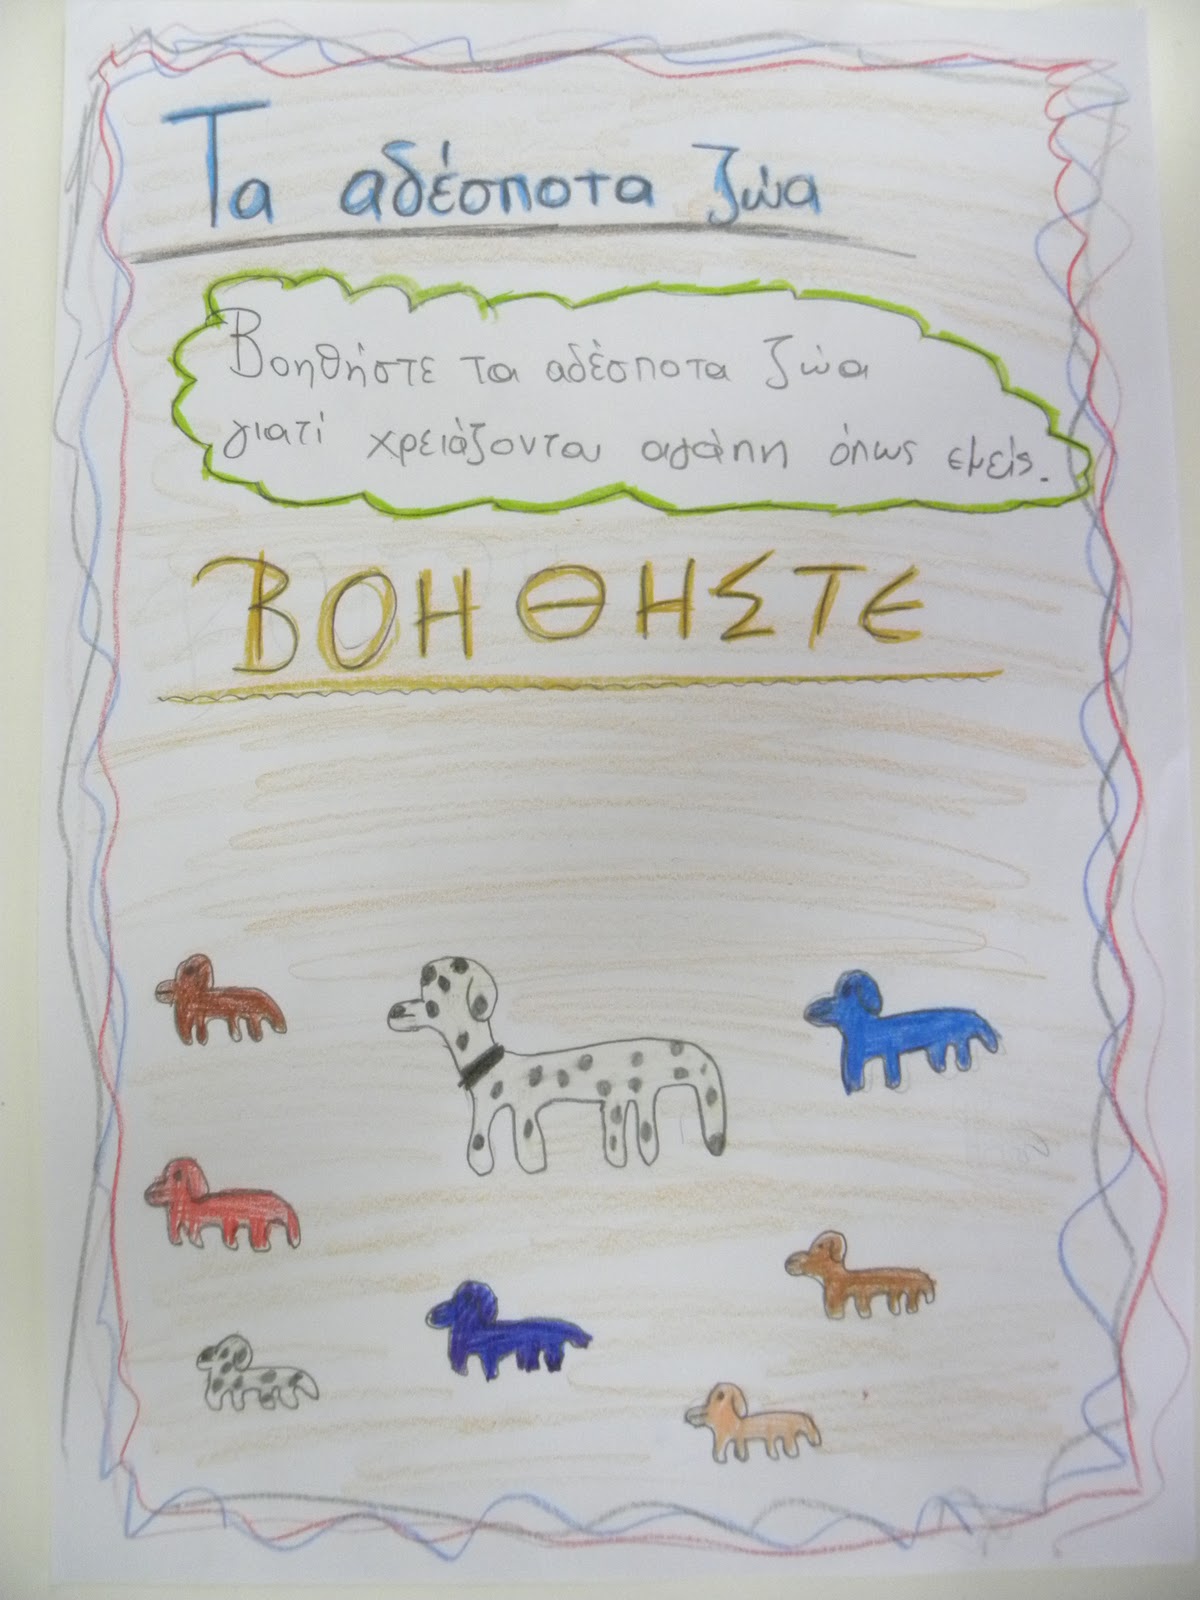 Τα αδέσποτα ζώα
Βοηθήστε τα αδέσποτα ζώα
γιατί χρειάζονται αγάπη όπως εμείς.
ΒΟΗΘΗΣΤΕ